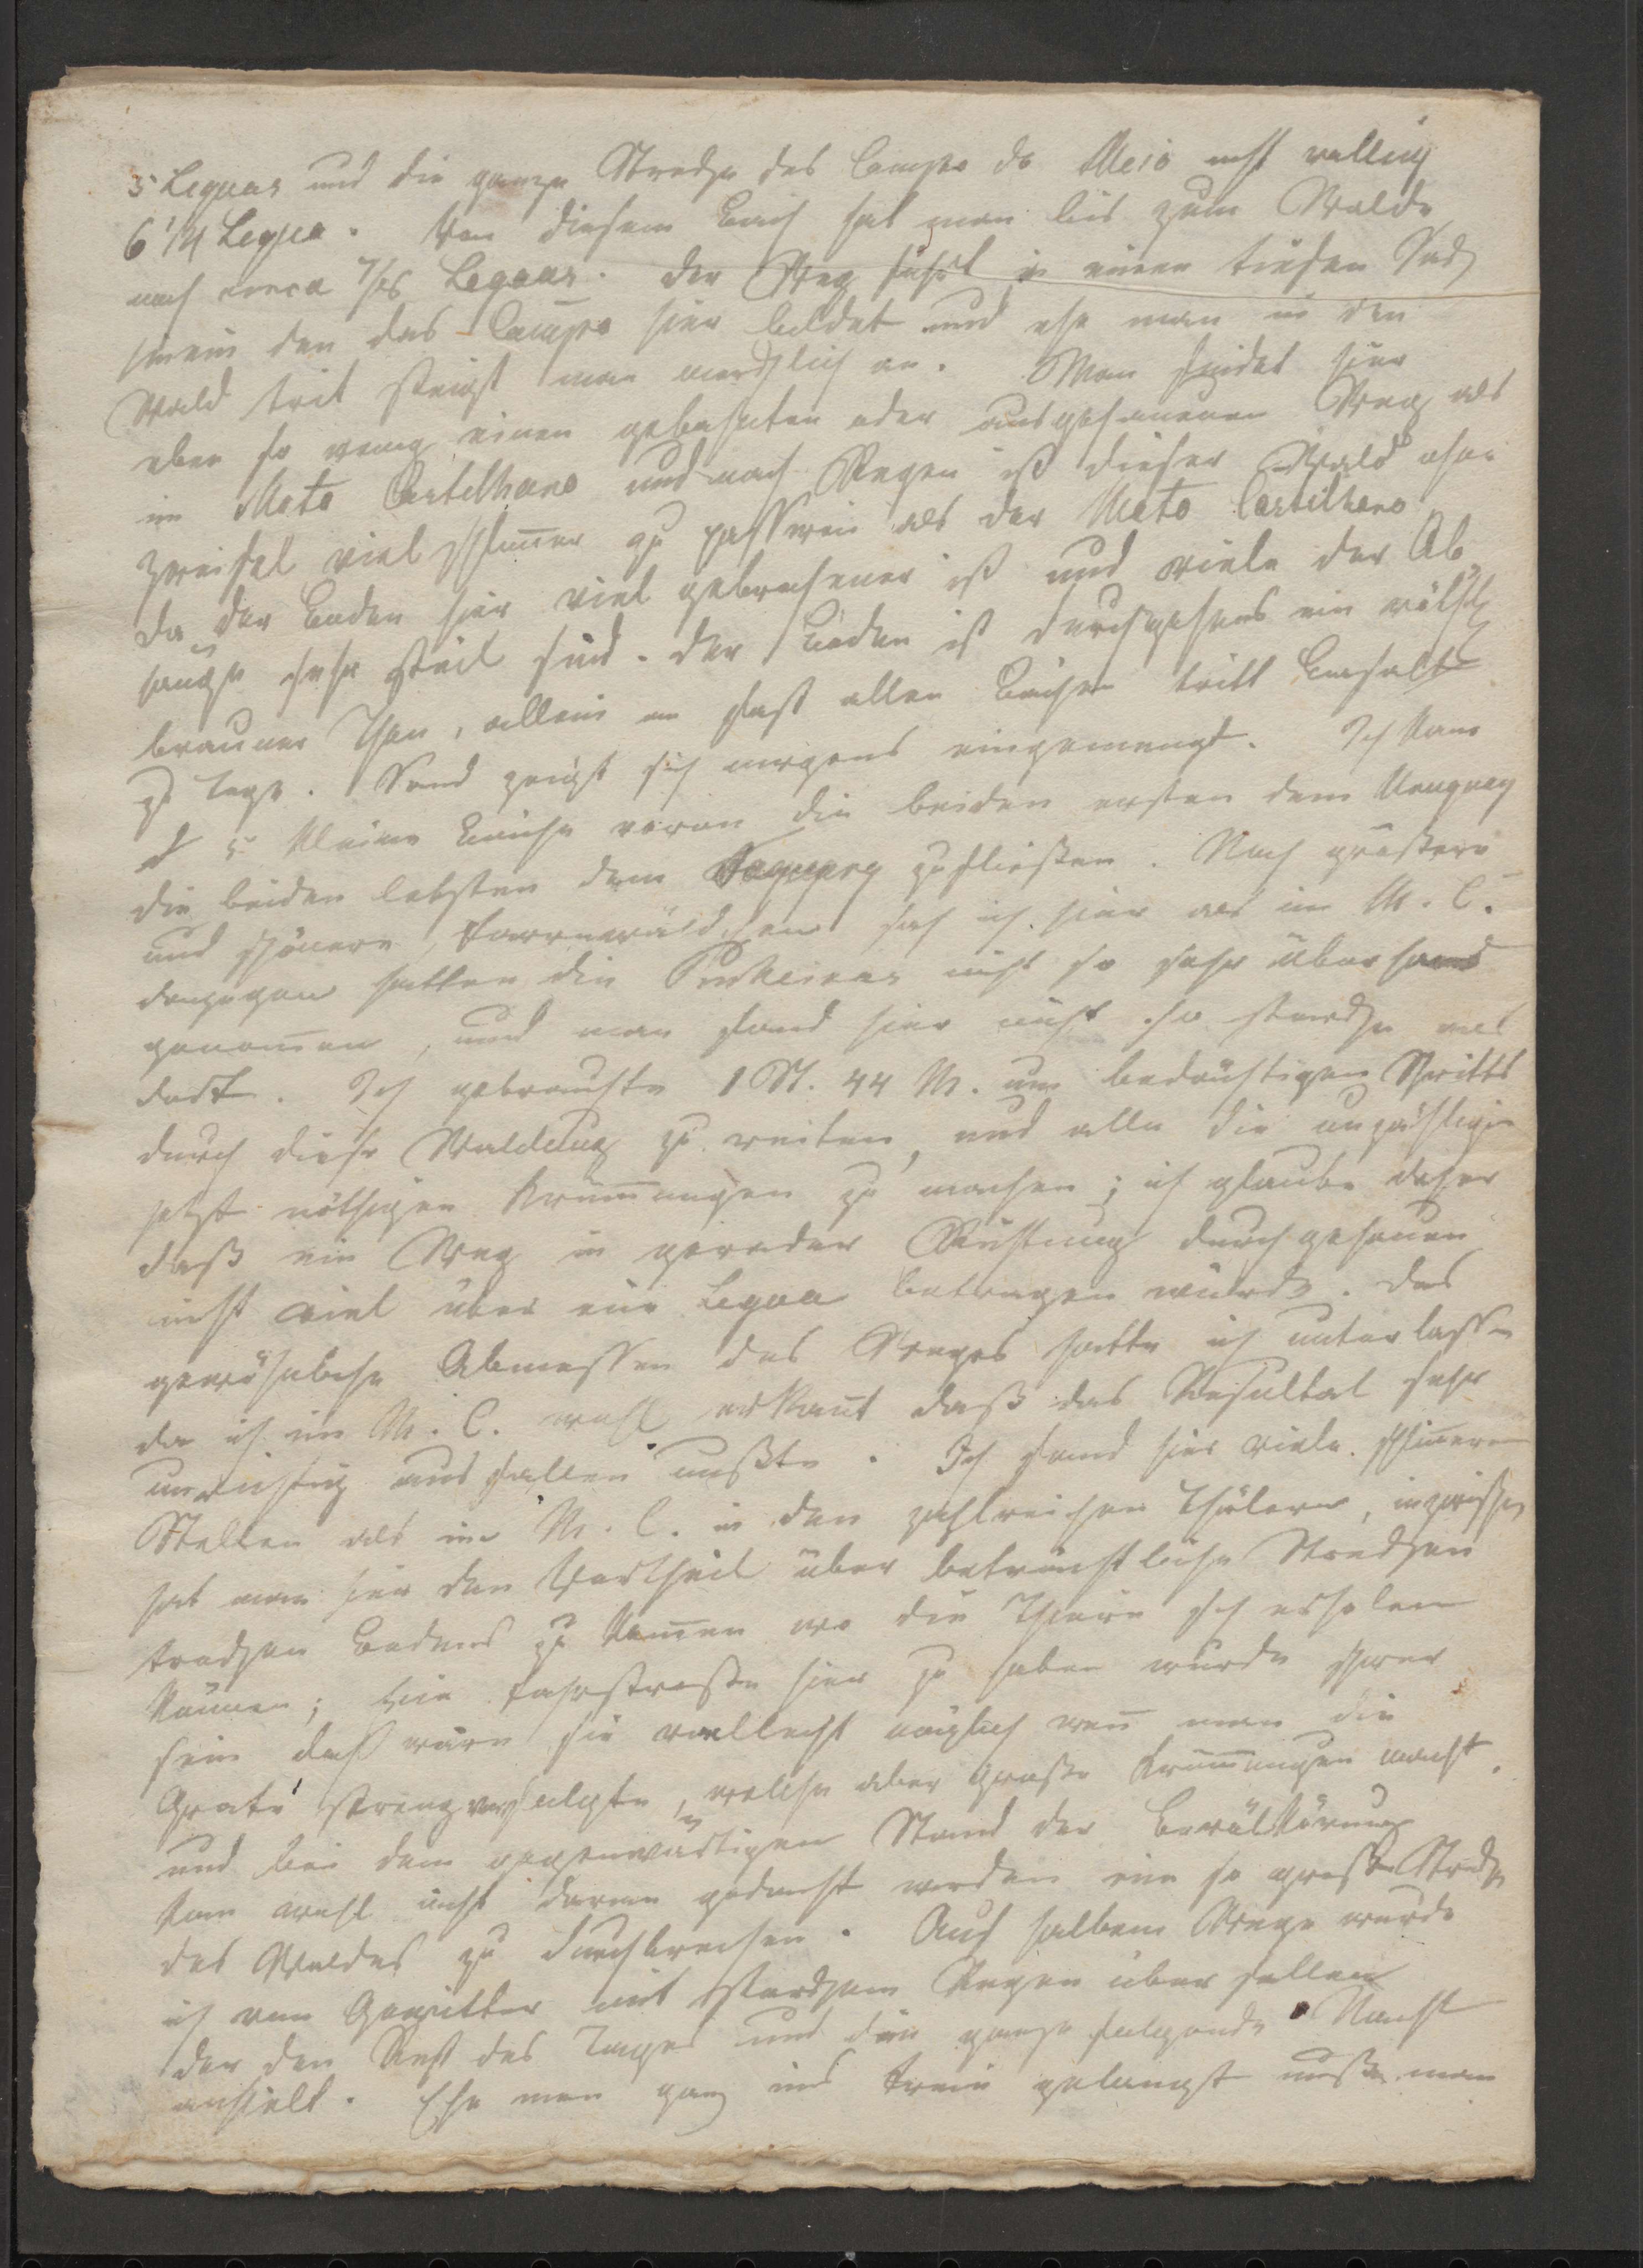 5 Leguas und die ganze Strecke des Campo do Meio nicht völlig
6 1/4 Legua. Von diesem Bach hat man bis zum Walde
noch circa 7/16 Leguas. Der Weg führt in einen tiefen Sack
hinein den das Campo hier bildet und ehe man in den
Wald trit steigt man merklich an. Man findet hier
eben so wenig einen gebahnten oder ausgehauenen Weg als
im Mato Castelhano und nach Regen ist dieser Wald ohne
Zweifel viel schlimmer zu passiren als der Mato Castelhano
da der Boden hier viel gebrochener ist und viele der Ab
hänge sehr steil sind. Der Boden ist durchgehends ein röthl
brauner Thon, allein an fast allen Bächen tritt Basalt
zu Tage. Sand zeigt sich nirgends eingemengt. Ich kam
5 kleine Bäche wovon die beiden ersten dem Uruguay
die beiden letzten dem Taquary zufließen. Noch größere
und schönere Farrnwäldchen sah ich hier als im M. C.
dagegen hatten die nicht so sehr überhand
genommen, und man fand hier nicht so starke als
dort. Ich gebrauchte 1 St. 44 M. um bedächtigen Schritts
durch diese Waldung zu reiten, und alle die unzähligen
jetzt nöthigen Krümmungen zu machen; ich glaube daher
daß ein Weg in gerader Richtung durchgehauen
nicht viel über eine Legoa betragen würde. Das
gewöhnliche Abmessen des Weges hatte ich unterlassen
da ich im M. C. wohl erkannt daß das Resultat sehr
unrichtig ausfallen mußte. Ich fand hier viele schlimmere
Stellen als im M. C. in den zahlreichen Thälern, inzwischen
hat man hier den Vortheil über beträchtliche Strecken
trocknen Bodens zu kommen wo die Thiere sich erholen
können; Eine Fahrstraße hier zu haben würde schwer
sein doch wäre sie vielleicht möglich wenn man die
Grate streng verfolgte, welche aber große Krümmungen macht,
und bei dem gegenwärtigen Stand der Bevölkerung
kann wohl nicht daran gedacht werden eine so große Strecke
des Waldes zu durchbrechen. Auf halbem Wege wurde
ich von Gewitter mit starkem Regen überfallen
der den Rest des Tages und die ganze folgende Nacht
anhielt. Ehe man ganz ins Freie gelangt muß man